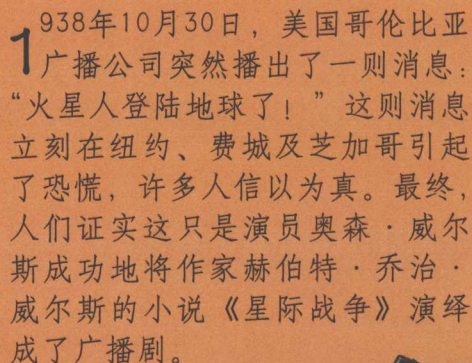 1938年10月30日，美国哥伦比亚
广播公司突然播出了一则消息：
“火星人登陆地球了！”这则消息
立刻在纽约、费城及芝加哥引起
了恐慌，许多人信以为真。最终，
人们证实这只是演员奥森·威尔
斯成功地将作家赫伯特·乔治·
威尔斯的小说《星际战争》演绎
成了广播剧。